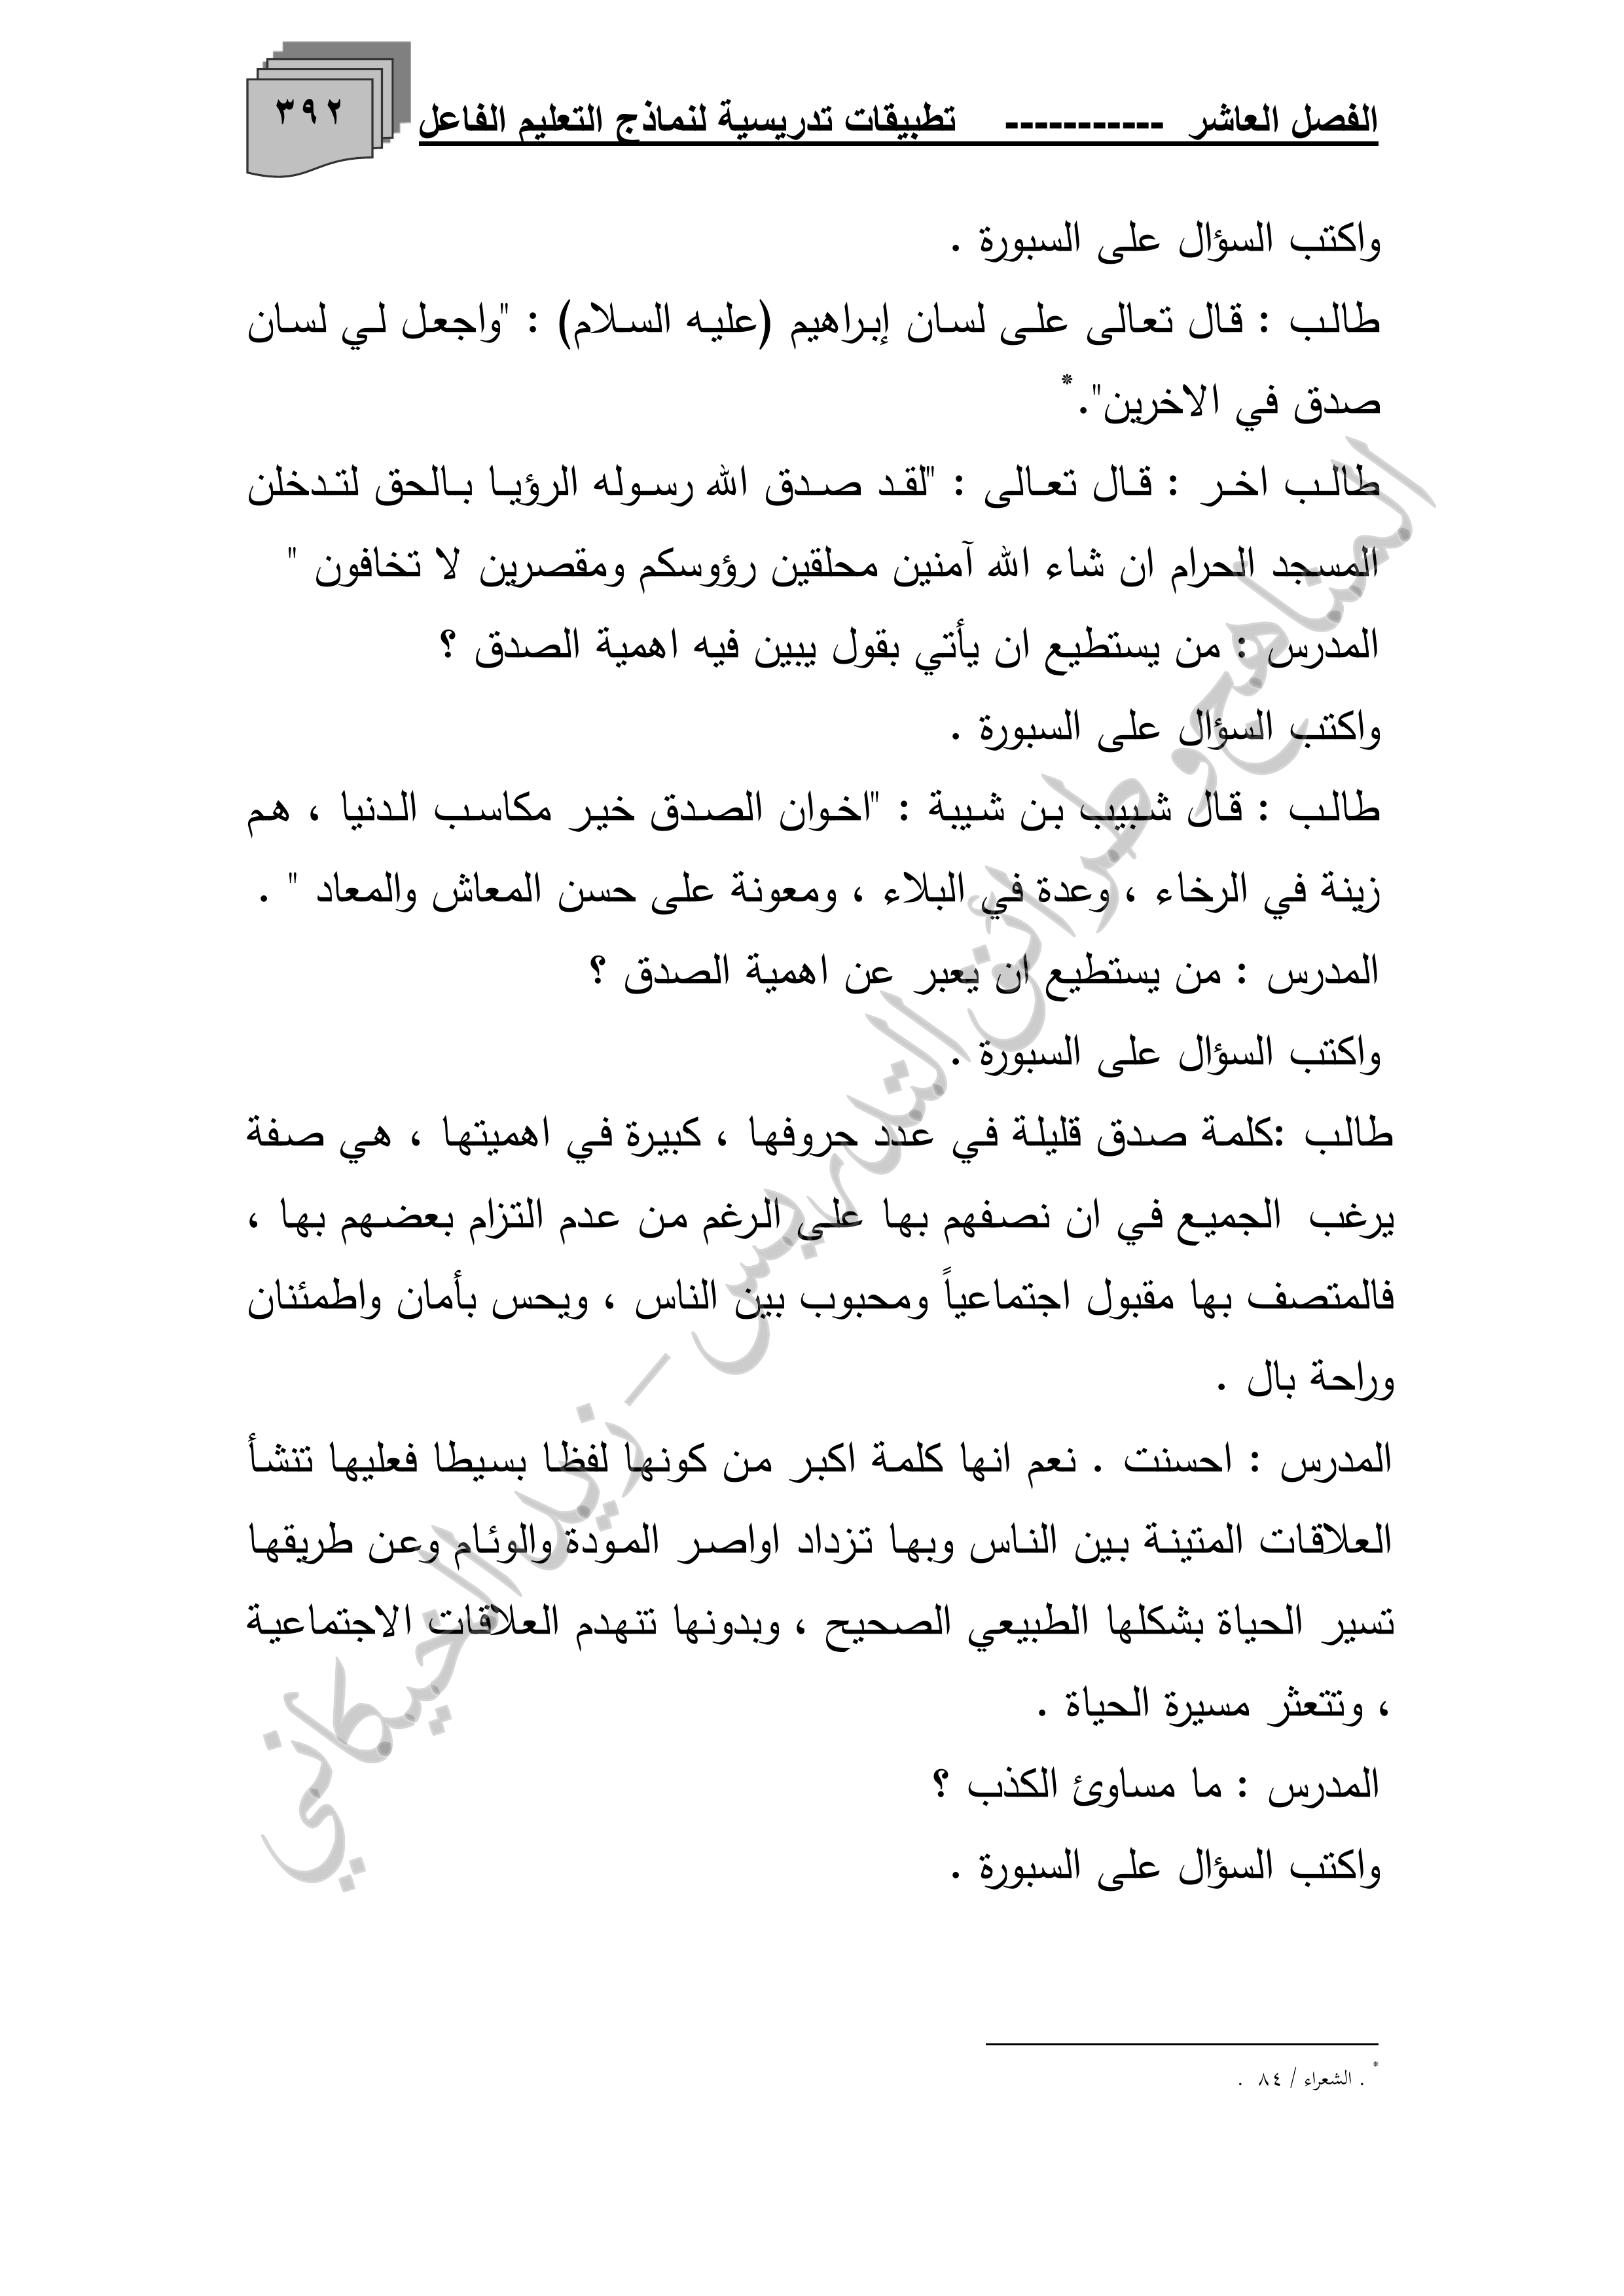 الفصل العاشر ----------- تطبيقات تدريسية لنماذج التعليم الفاعل
٣٩٢
واكتب السؤال على السبورة .
طالب : قال تعالى على لسان إبراهيم (عليه السلام) : "واجعل لي لسان
صدق في الاخرين".*
طالب اخر : قال تعالى : "لقد صدق الله رسوله الرؤيا بالحق لتدخلن
المسجد الحرام ان شاء الله آمنين محلقين رؤوسكم ومقصرين لا تخافون "
المدرس : من يستطيع ان يأتي بقول يبين فيه اهمية الصدق ؟
واكتب السؤال على السبورة .
طالب : قال شبيب بن شيبة : "اخوان الصدق خير مكاسب الدنيا ، هم
زينة في الرخاء ، وعدة في البلاء ، ومعونة على حسن المعاش والمعاد " .
المدرس : من يستطيع ان يعبر عن اهمية الصدق ؟
واكتب السؤال على السبورة .
طالب :كلمة صدق قليلة في عدد حروفها ، كبيرة في اهميتها ، هي صفة
يرغب الجميع في ان نصفهم بها على الرغم من عدم التزام بعضهم بها ،
فالمتصف بها مقبول اجتماعياً ومحبوب بين الناس ، ويحس بأمان واطمئنان
وراحة بال .
المدرس : احسنت . نعم انها كلمة اكبر من كونها لفظا بسيطا فعليها تنشأ
العلاقات المتينة بين الناس وبها تزداد اواصر المودة والوئام وعن طريقها
تسير الحياة بشكلها الطبيعي الصحيح ، وبدونها تتهدم العلاقات الاجتماعية
، وتتعثر مسيرة الحياة .
المدرس : ما مساوئ الكذب ؟
واكتب السؤال على السبورة .
* . الشعراء / ٨٤ .
المناهج وطرائق التدريس - زيد الخيكاني